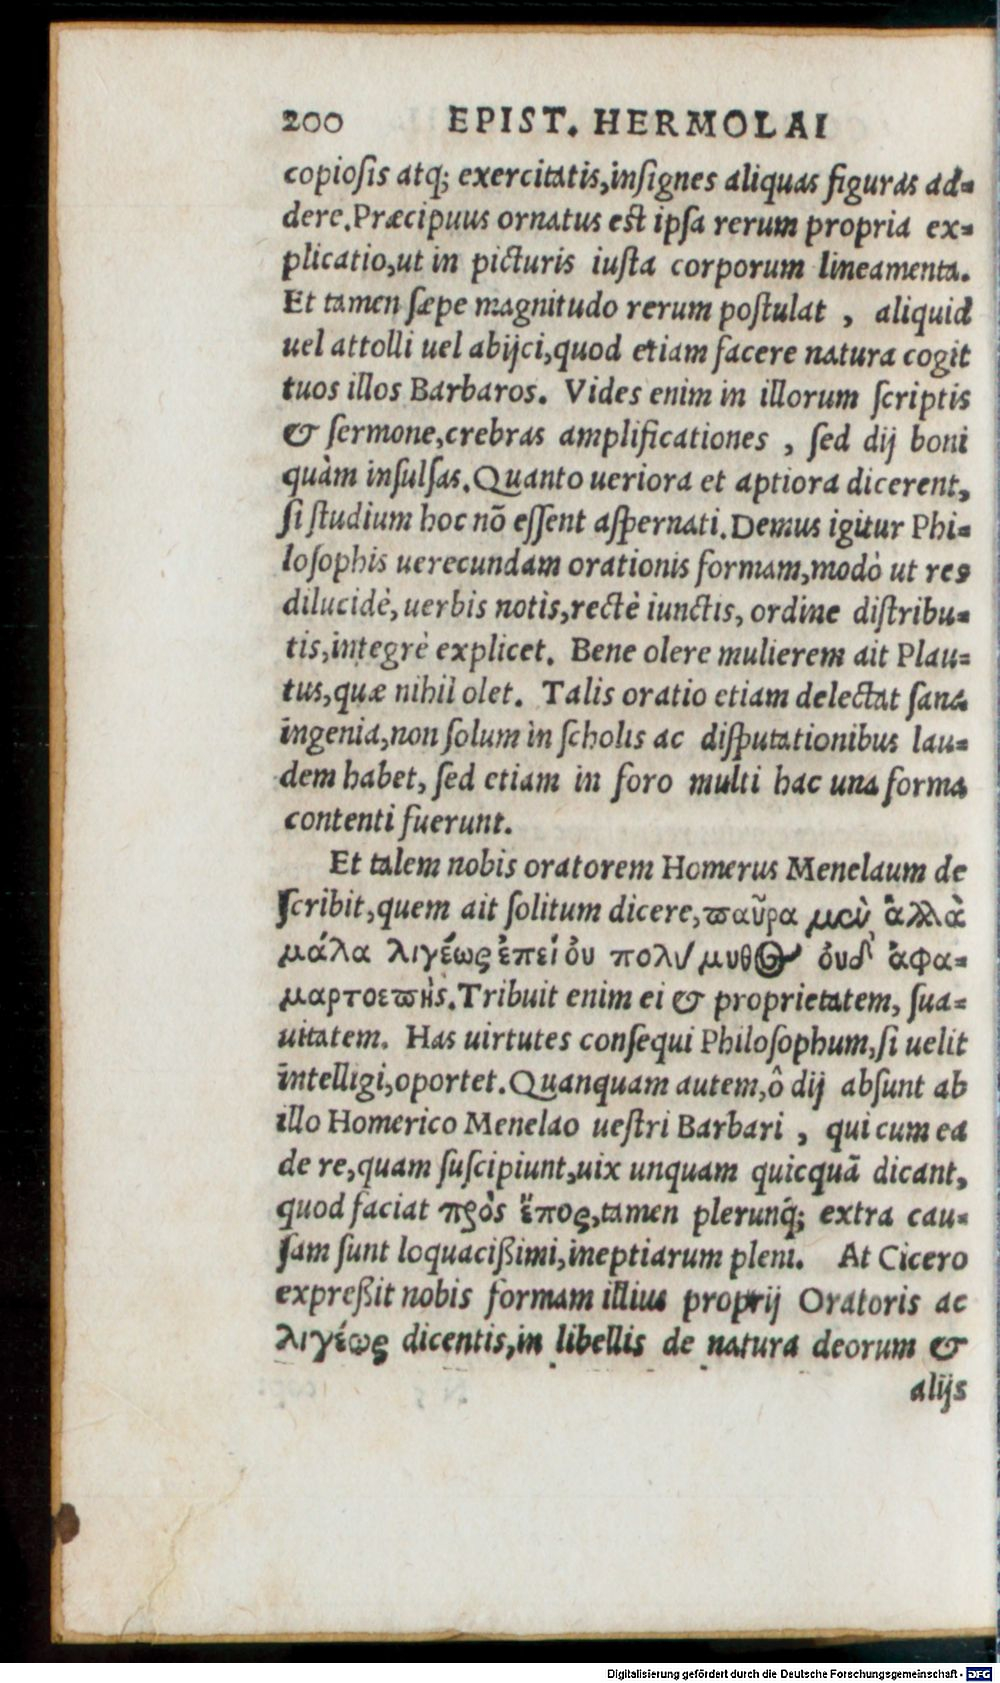 200 EPIST. HERMOLAI
copiosis atq; exercitatis,insignes aliquas figuras ad=
dere.Præcipuus ornatus est ipsa rerum propria ex=
plicatio,ut in picturis iusta corporum lineamenta.
Et tamen sæpe magnitudo rerum postulat , aliquid
uel attolli uel abijci,quod etiam facere natura cogit
tuos illos Barbaros. Vides enim in illorum scriptis
& sermone,crebras amplificationes , sed dij boni
quàm insulsas.Quanto ueriora et aptiora dicerent,
si studium hoc nō essent aspernati.Demus igitur Phi=
losophis uerecundam orationis formam,modò ut res
dilucidè,uerbis notis,rectè iunctis, ordine distribu=
tis,integrè explicet. Bene olere mulierem ait Plau=
tus,quæ nihil olet. Talis oratio etiam delectat sana
ingenia,non solum in scholis ac disputationibus lau=
dem habet, sed etiam in foro multi hac una forma
contenti fuerunt.
Et talem nobis oratorem Homerus Menelaum de
scribit,quem ait solitum dicere,παῦρα μὲν ἀλλὰ
μάλα λιγέως ἐπεὶ οὐ πολύμυθος οὐδ' ἀφα=
μαρτοεπής.Tribuit enim ei & proprietatem, sua=
uitatem. Has uirtutes consequi Philosophum,si uelit
intelligi,oportet.Quanquam autem,ô dij absunt ab
illo Homerico Menelao uestri Barbari , qui cum ea
de re,quam suscipiunt,uix unquam quicquā dicant,
quod faciat πρὸς ἔπος,tamen plerunq́; extra cau=
sam sunt loquacißimi,ineptiarum pleni. At Cicero
expreßit nobis formam illius proprij Oratoris ac
λιγέως dicentis,in libellis de natura deorum &
alijs
Digitalisierung gefördert durch die Deutsche Forschungsgemeinschaft - DFG